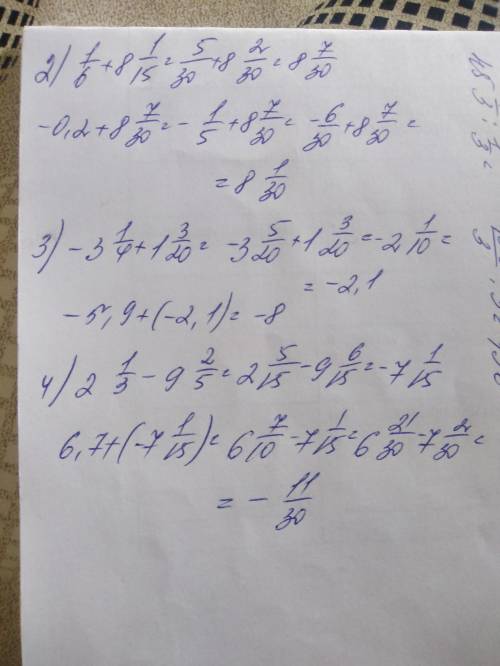 2) 1/6 + 8 1/15 = 5/30 + 8 2/30 = 8 7/30
-0,2 + 8 7/30 = - 1/5 + 8 7/30 = -6/30 + 8 7/30 =
= 8 1/30
3) -3 1/4 + 1 3/20 = -3 5/20 + 1 3/20 = -2 1/10 =
= -2,1
-5,9 + (-2,1) = -8
4) 2 1/3 - 9 2/5 = 2 5/15 - 9 6/15 = -7 1/15
6,7 + (-7 1/15) = 6 7/10 - 7 1/15 = 6 21/30 - 7 2/30 =
= - 11/30